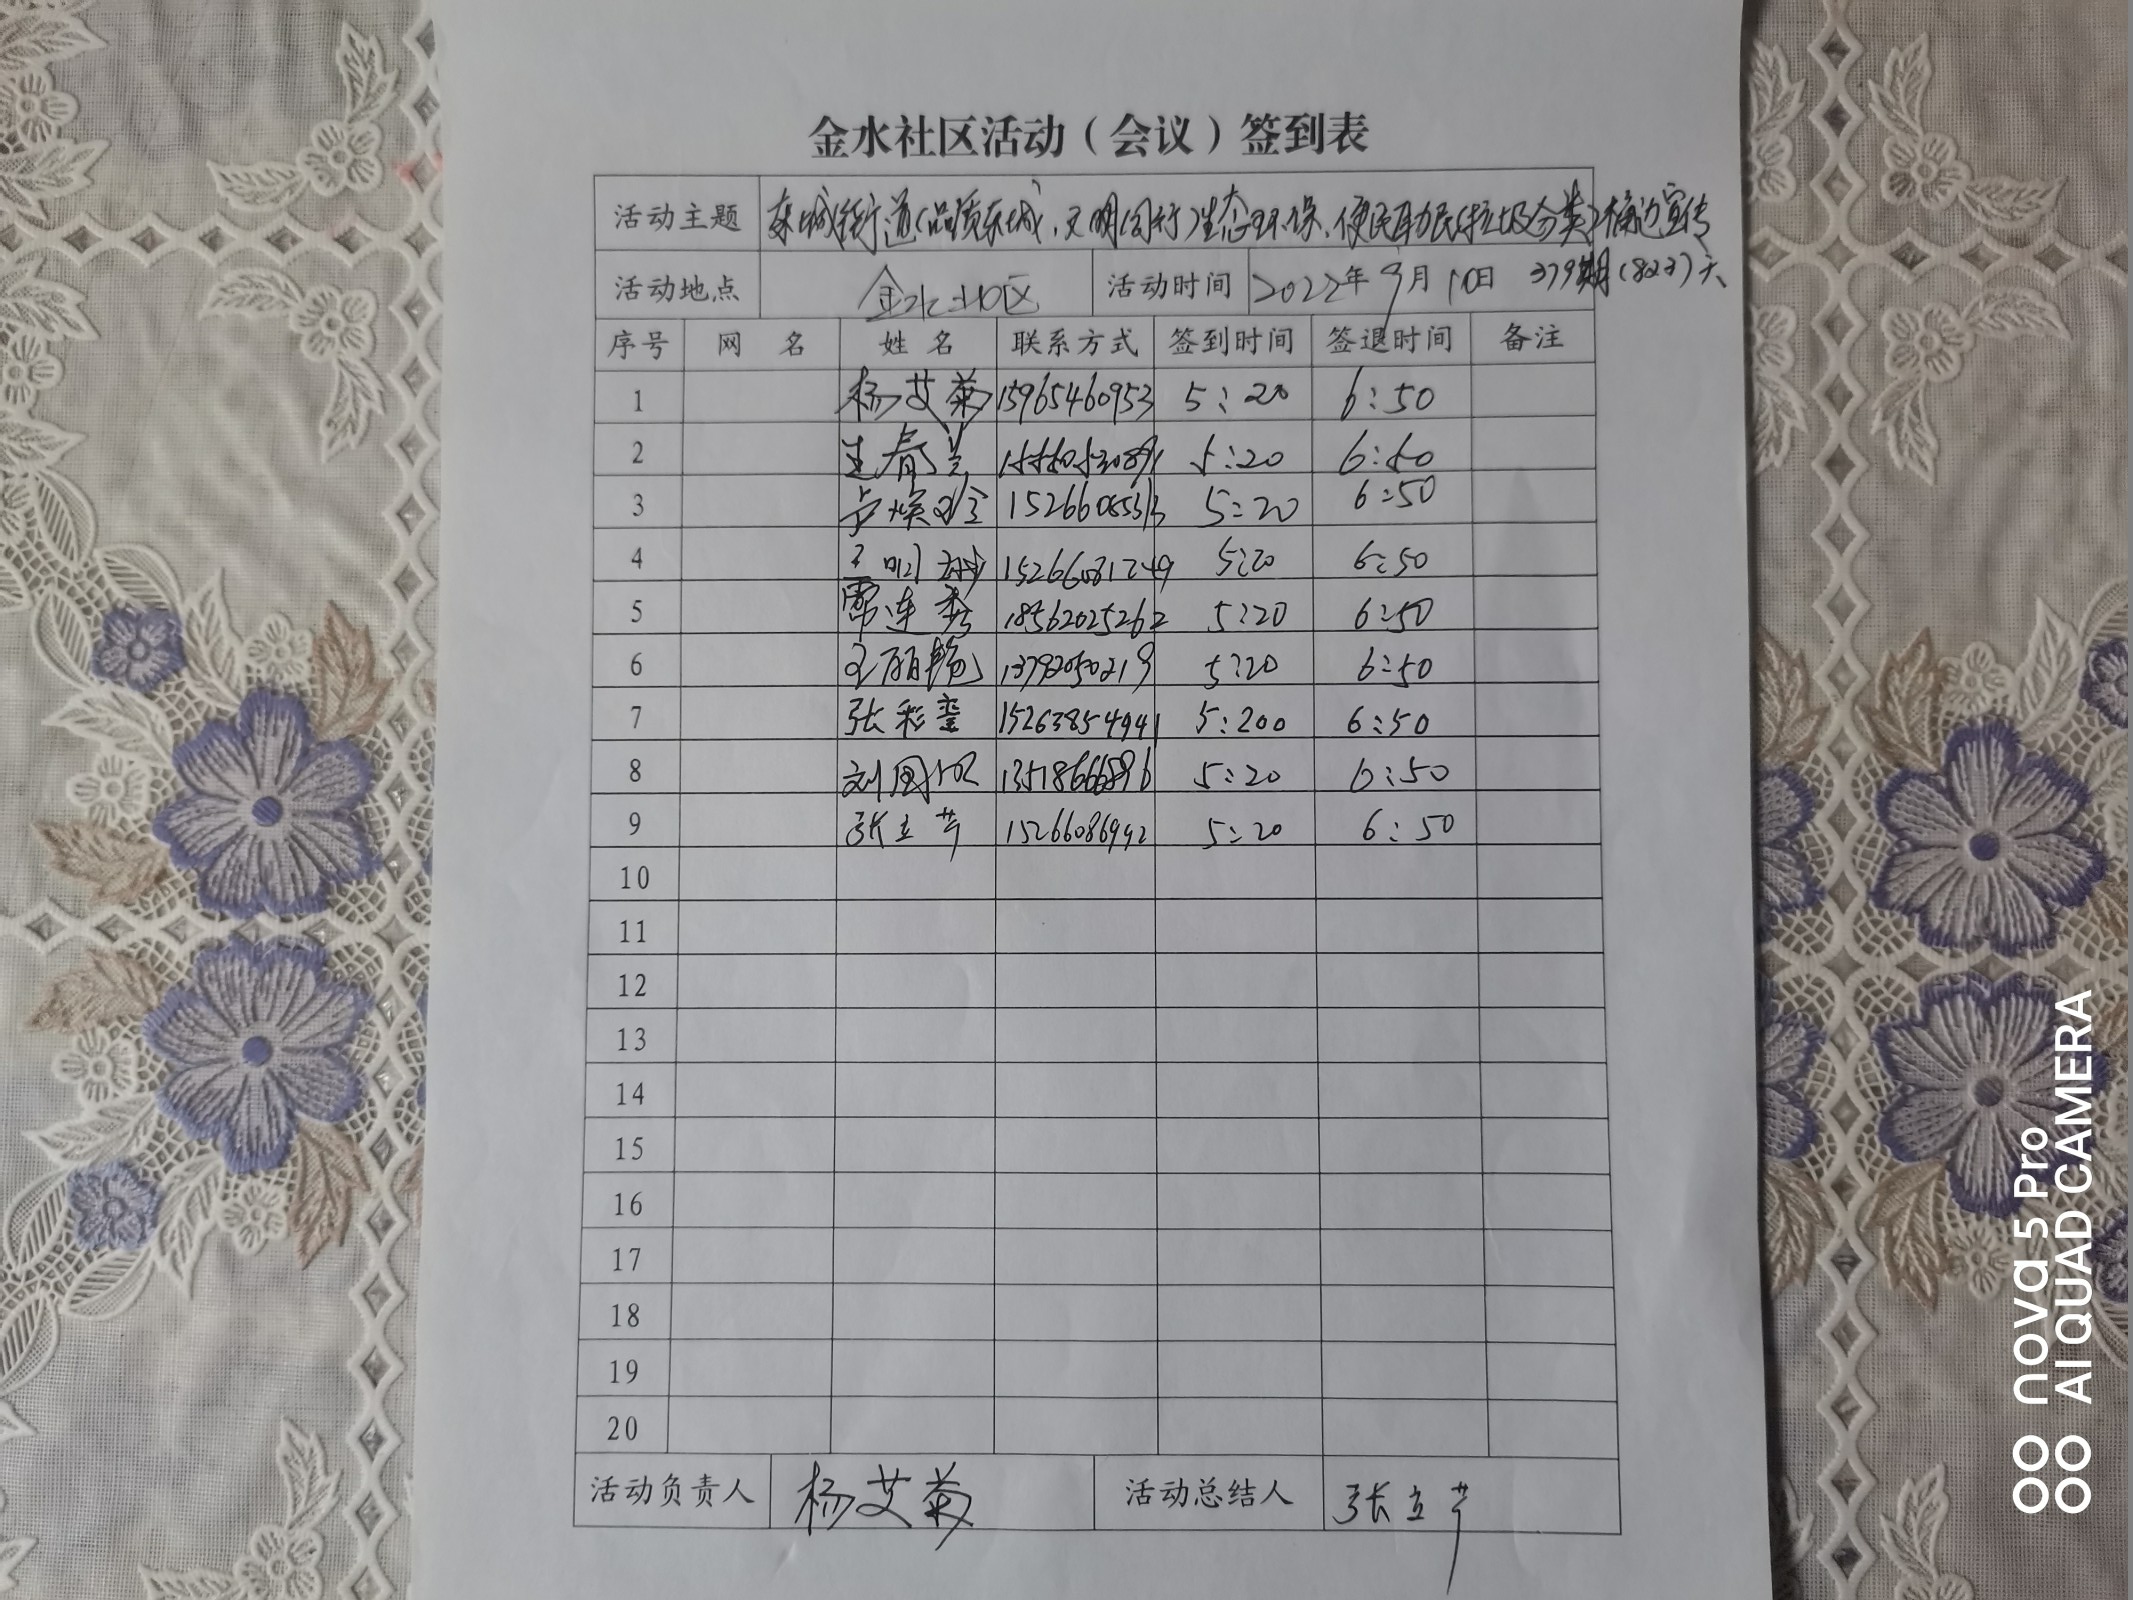 金水社区活动（会议）签到表
活动主题 东城街道(品质东城、文明同行)生态环保、便民助民(垃圾分类)桶边宣传
活动地点 金水社区 活动时间 2022年9月10日 379期(823)天
序号 网 名 姓 名 联系方式 签到时间 签退时间 备注
1 杨艾菊 15965460953 5:20 6:50
2 春兰 5:20 6:50
3 卢焕 5:20 6:50
4 王明 15266081249 5:20 6:50
5 连秀 18562025262 5:20 6:50
6 王丽艳 13792050219 5:20 6:50
7 张彩銮 15263854941 5:200 6:50
8 刘国 13518666896 5:20 6:50
9 张立芹 15266086992 5:20 6:50
10
11
12
13
14
15
16
17
18
19
20
活动负责人 杨艾菊 活动总结人 张立芹
nova 5 Pro
AI QUAD CAMERA